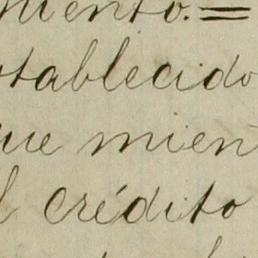 miento.=
stablecido
ue mien
l crédito